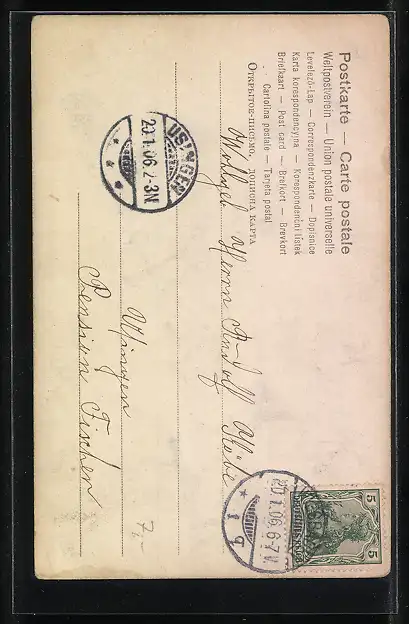 Postkarte — Carte postale
Weltpostverein — Union postale universelle
Levelező-Lap — Correspondenzkarte — Dopisnice
Karta korespondencyjna — Korespondenční lístek
Briefkaart — Post card — Brefkort — Brevkort
Cartolina postale — Tarjeta postal
Открытое письмо.
5
5
20.1.06.6-7V
USINGEN
20.1.06.2-3N
Wohlgeb Herrn Rudolf
Usingen
Pension Fischer
7,-